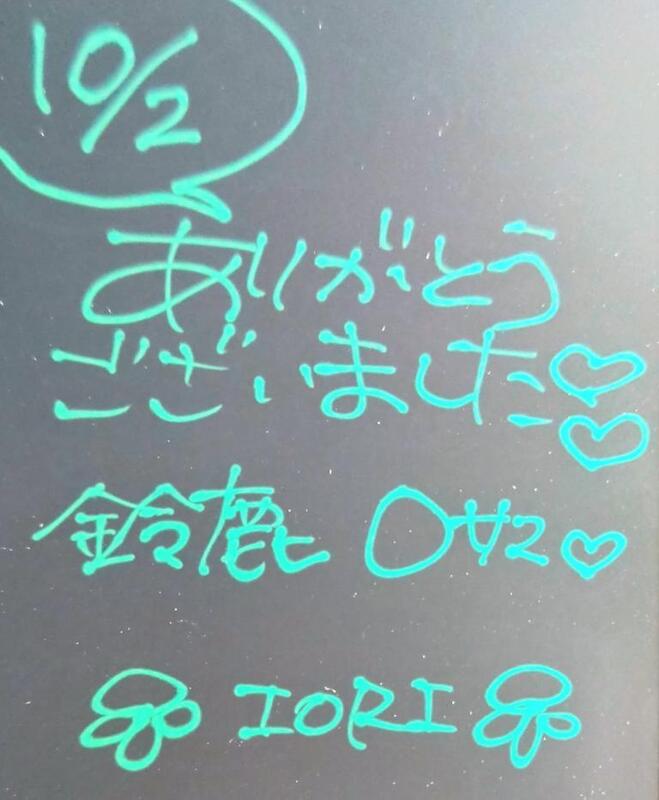 10/2
ありがとう
ございました♡♡
鈴鹿 ♡
IORI